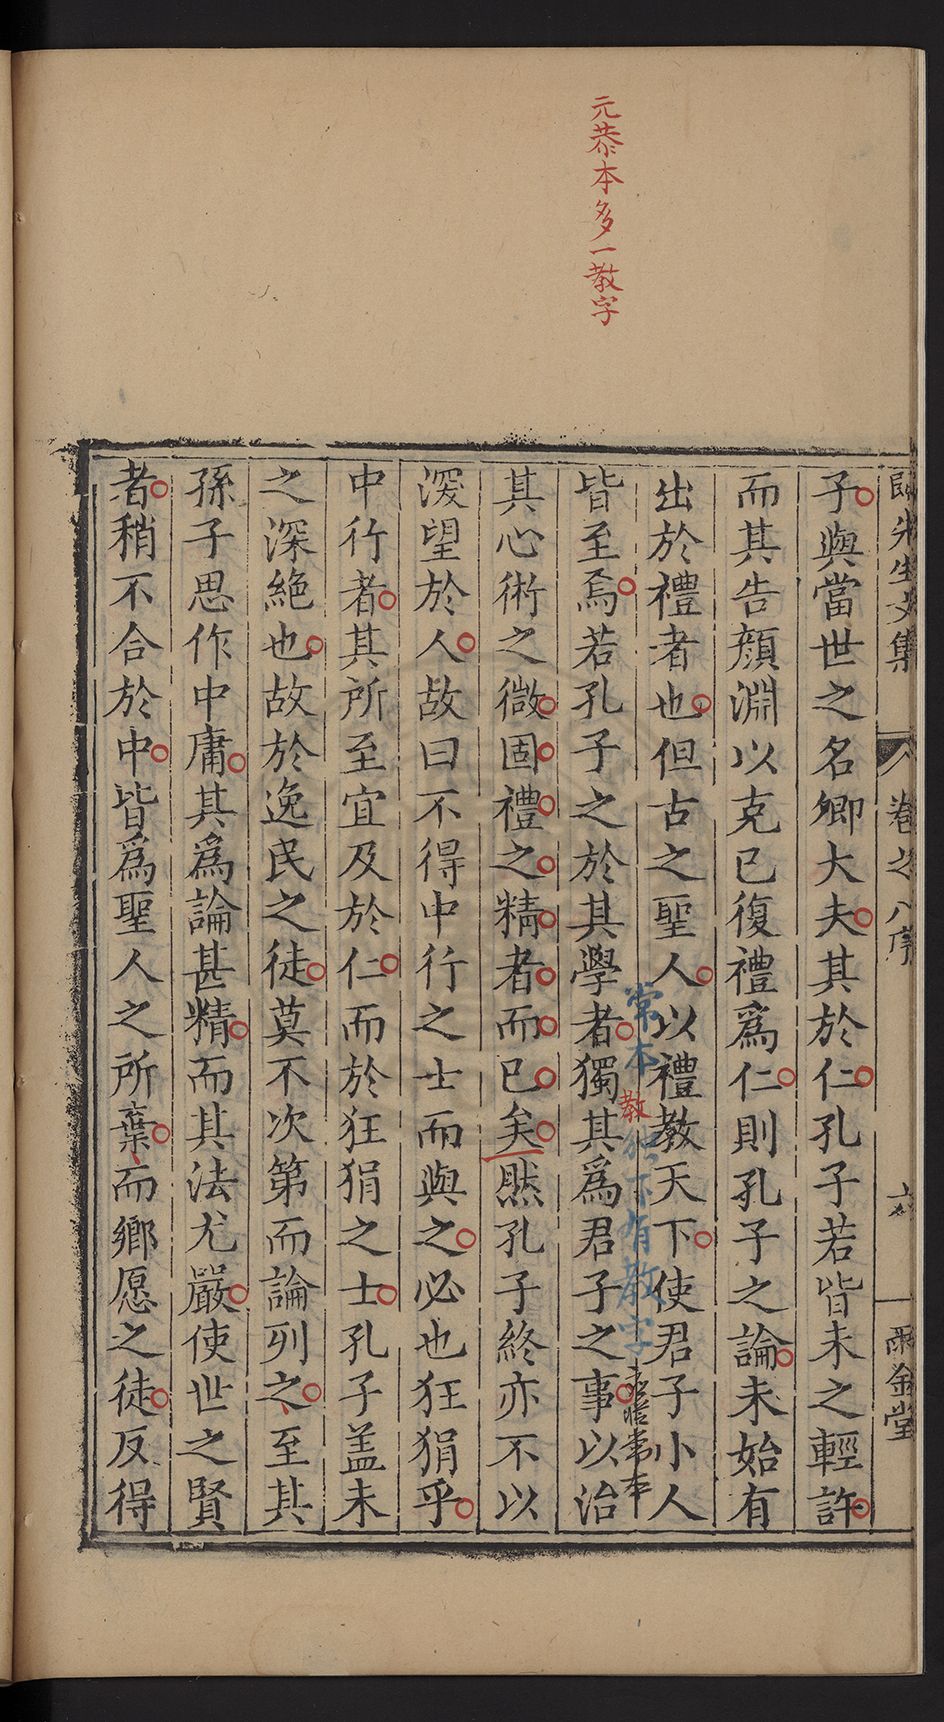 元恭本多一教字
歸先生文集 卷之八序 六 雨金堂
子與當世之名卿大夫其於仁孔子若皆未之輕許
而其告顏淵以克已復禮爲仁則孔子之論未始有
出於禮者也但古之聖人以禮教天下使君子小人
常本獨下有教字
教
常本
皆至焉若孔子之於其學者獨其爲君子之事以治
其心術之微固禮之精者而已矣然孔子終亦不以
深望於人故曰不得中行之士而與之必也狂狷乎
中行者其所至宜及於仁而於狂狷之士孔子盖未
之深絶也故於逸民之徒莫不次第而論列之至其
孫子思作中庸其爲論甚精而其法尤嚴使世之賢
者稍不合於中皆爲聖人之所棄而鄉愿之徒反得